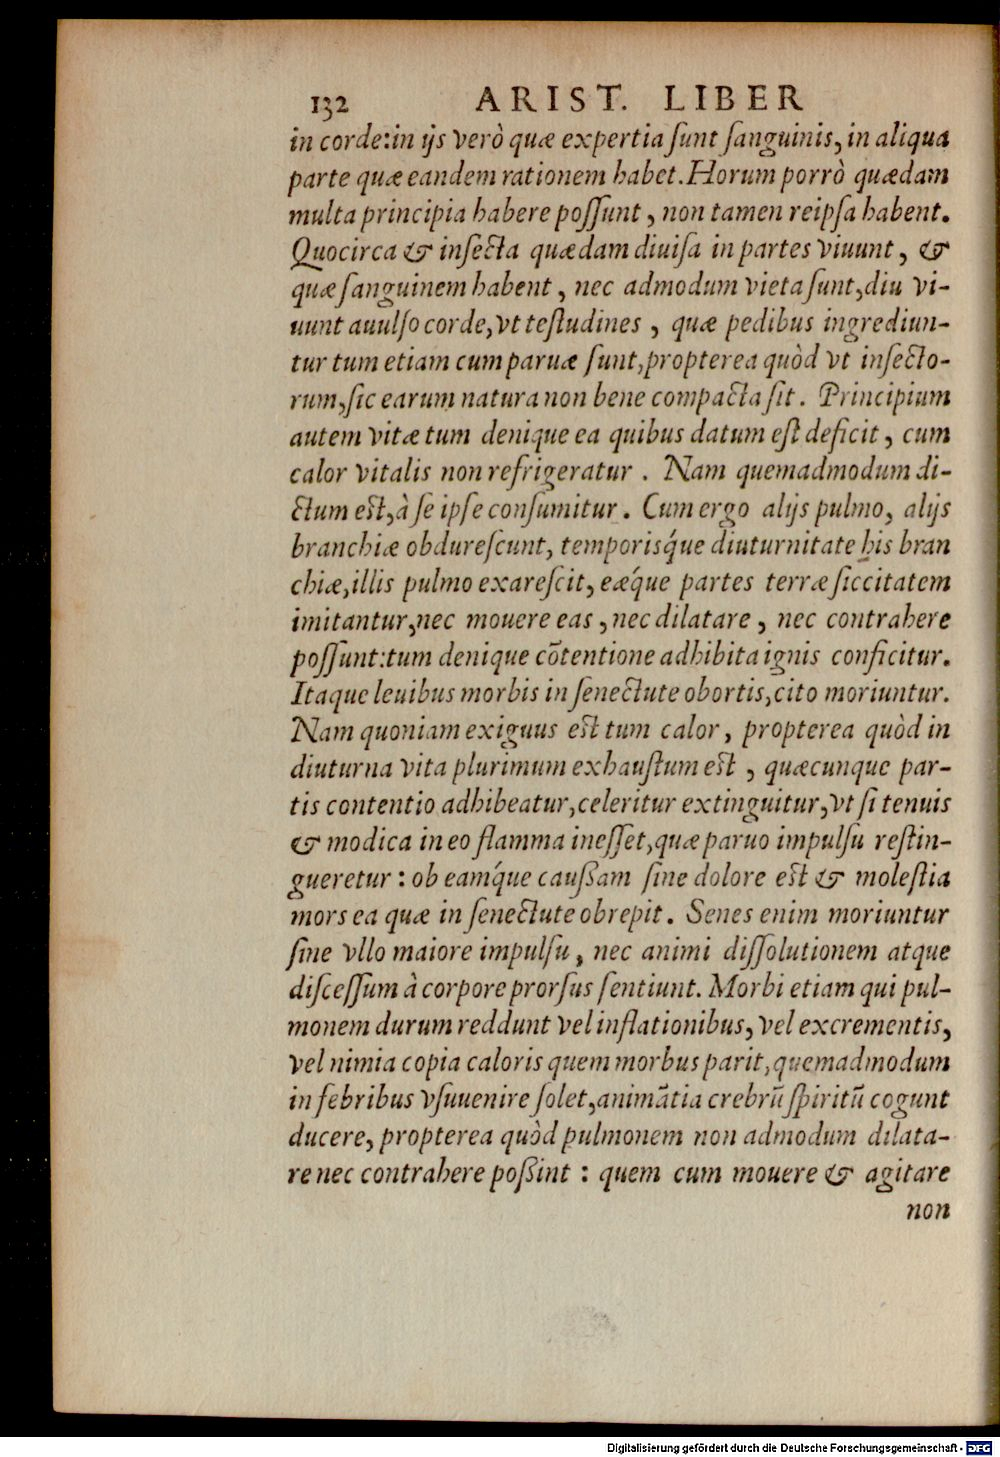 132 ARIST. LIBER
in corde: in ijs verò quæ expertia ſunt ſanguinis, in aliqua
parte quæ eandem rationem habet. Horum porrò quædam
multa principia habere poſſunt, non tamen reipſa habent.
Quocirca & inſecta quædam diuiſa in partes viuunt, &
quæ ſanguinem habent, nec admodum vieta ſunt, diu vi-
uunt auulſo corde, vt teſtudines, quæ pedibus ingrediun-
tur tum etiam cum paruæ ſunt, propterea quòd vt inſecto-
rum, ſic earum natura non bene compacta ſit. Principium
autem vitæ tum denique ea quibus datum eſt deficit, cum
calor vitalis non refrigeratur. Nam quemadmodum di-
ctum eſt, à ſe ipſe conſumitur. Cum ergo alijs pulmo, alijs
branchiæ obdureſcunt, temporisq́ue diuturnitate his bran
chiæ, illis pulmo exareſcit, eæq́ue partes terræ ſiccitatem
imitantur, nec mouere eas, nec dilatare, nec contrahere
poſſunt: tum denique cōtentione adhibita ignis conficitur.
Itaque leuibus morbis in ſenectute obortis, cito moriuntur.
Nam quoniam exiguus eſt tum calor, propterea quòd in
diuturna vita plurimum exhauſtum eſt, quæcunque par-
tis contentio adhibeatur, celeritur extinguitur, vt ſi tenuis
& modica in eo flamma ineſſet, quæ paruo impulſu reſtin-
gueretur: ob eamq́ue cauſsam ſine dolore eſt & moleſtia
mors ea quæ in ſenectute obrepit. Senes enim moriuntur
ſine vllo maiore impulſu, nec animi diſſolutionem atque
diſceſſum à corpore prorſus ſentiunt. Morbi etiam qui pul-
monem durum reddunt vel inflationibus, vel excrementis,
vel nimia copia caloris quem morbus parit, quemadmodum
in febribus vſuuenire ſolet, animātia crebrū ſpiritū cogunt
ducere, propterea quòd pulmonem non admodum dilata-
re nec contrahere poſsint: quem cum mouere & agitare
non
Digitalisierung gefördert durch die Deutsche Forschungsgemeinschaft - DFG